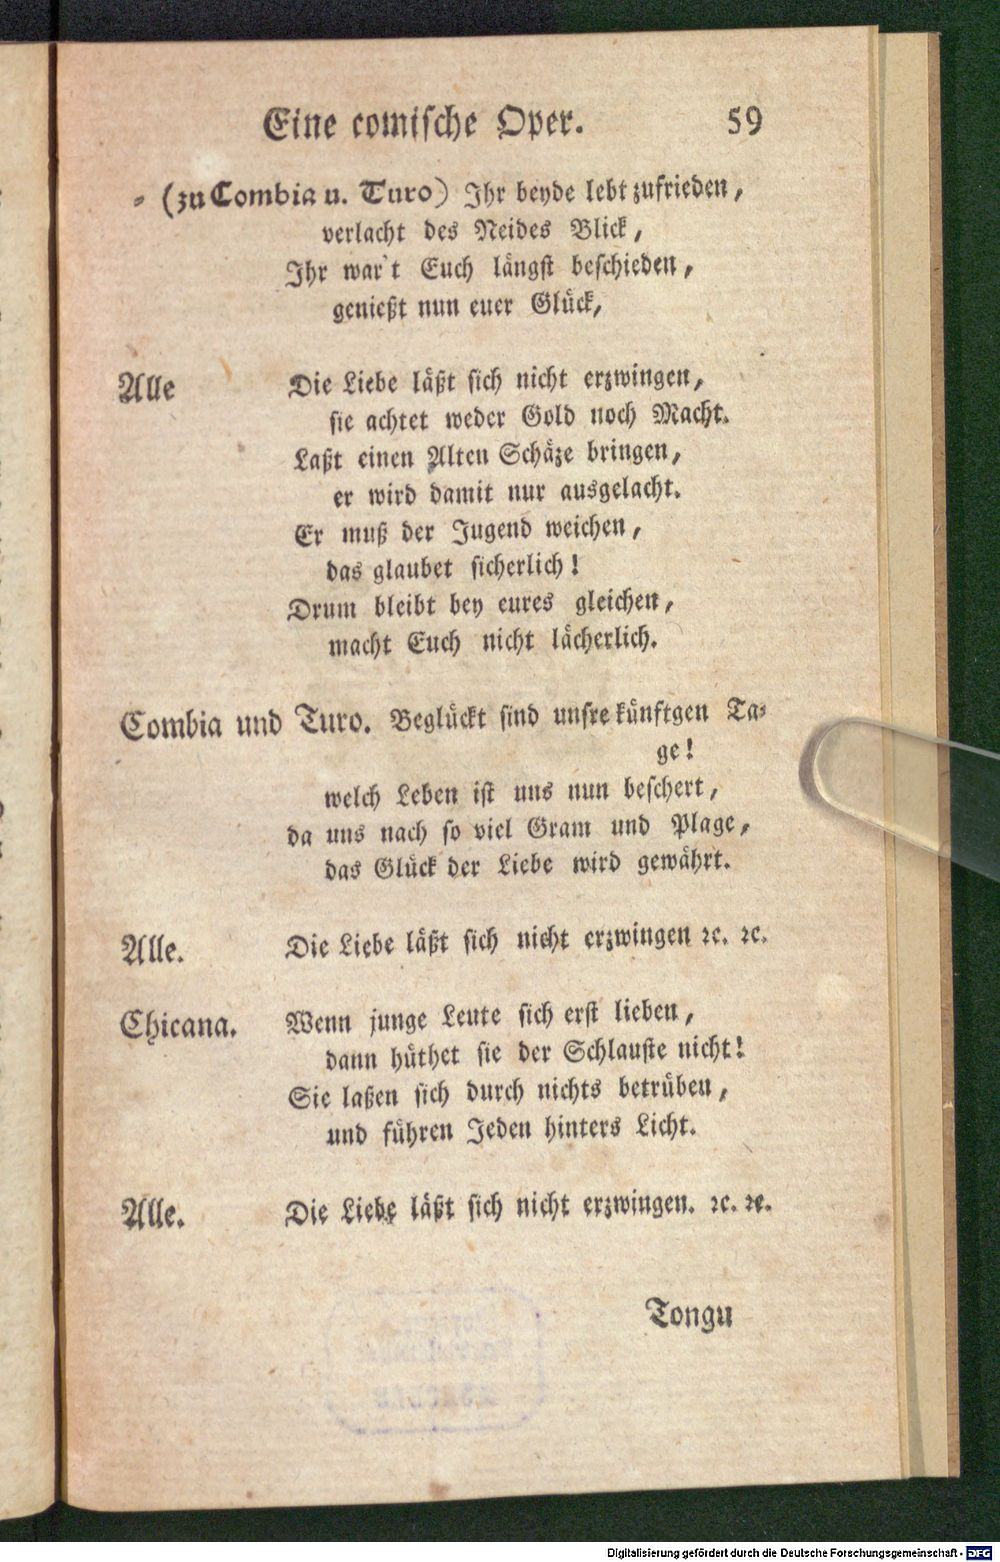 Eine comische Oper. 59
- (zu Combia u. Turo) Ihr beyde lebt zufrieden,
verlacht des Neides Blick,
Ihr war't Euch längst beschieden,
genießt nun euer Glück,
Alle Die Liebe läßt sich nicht erzwingen,
sie achtet weder Gold noch Macht.
Laßt einen Alten Schäze bringen,
er wird damit nur ausgelacht.
Er muß der Jugend weichen,
das glaubet sicherlich!
Drum bleibt bey eures gleichen,
macht Euch nicht lächerlich.
Combia und Turo. Beglückt sind unsre künftgen Ta-
ge!
welch Leben ist uns nun beschert,
da uns nach so viel Gram und Plage,
das Glück der Liebe wird gewährt.
Alle. Die Liebe läßt sich nicht erzwingen ꝛc. ꝛc.
Chicana. Wenn junge Leute sich erst lieben,
dann hüthet sie der Schlauste nicht!
Sie laßen sich durch nichts betrüben,
und führen Jeden hinters Licht.
Alle. Die Liebe läßt sich nicht erzwingen. ꝛc. ꝛc.
Tongu
Digitalisierung gefördert durch die Deutsche Forschungsgemeinschaft - DFG